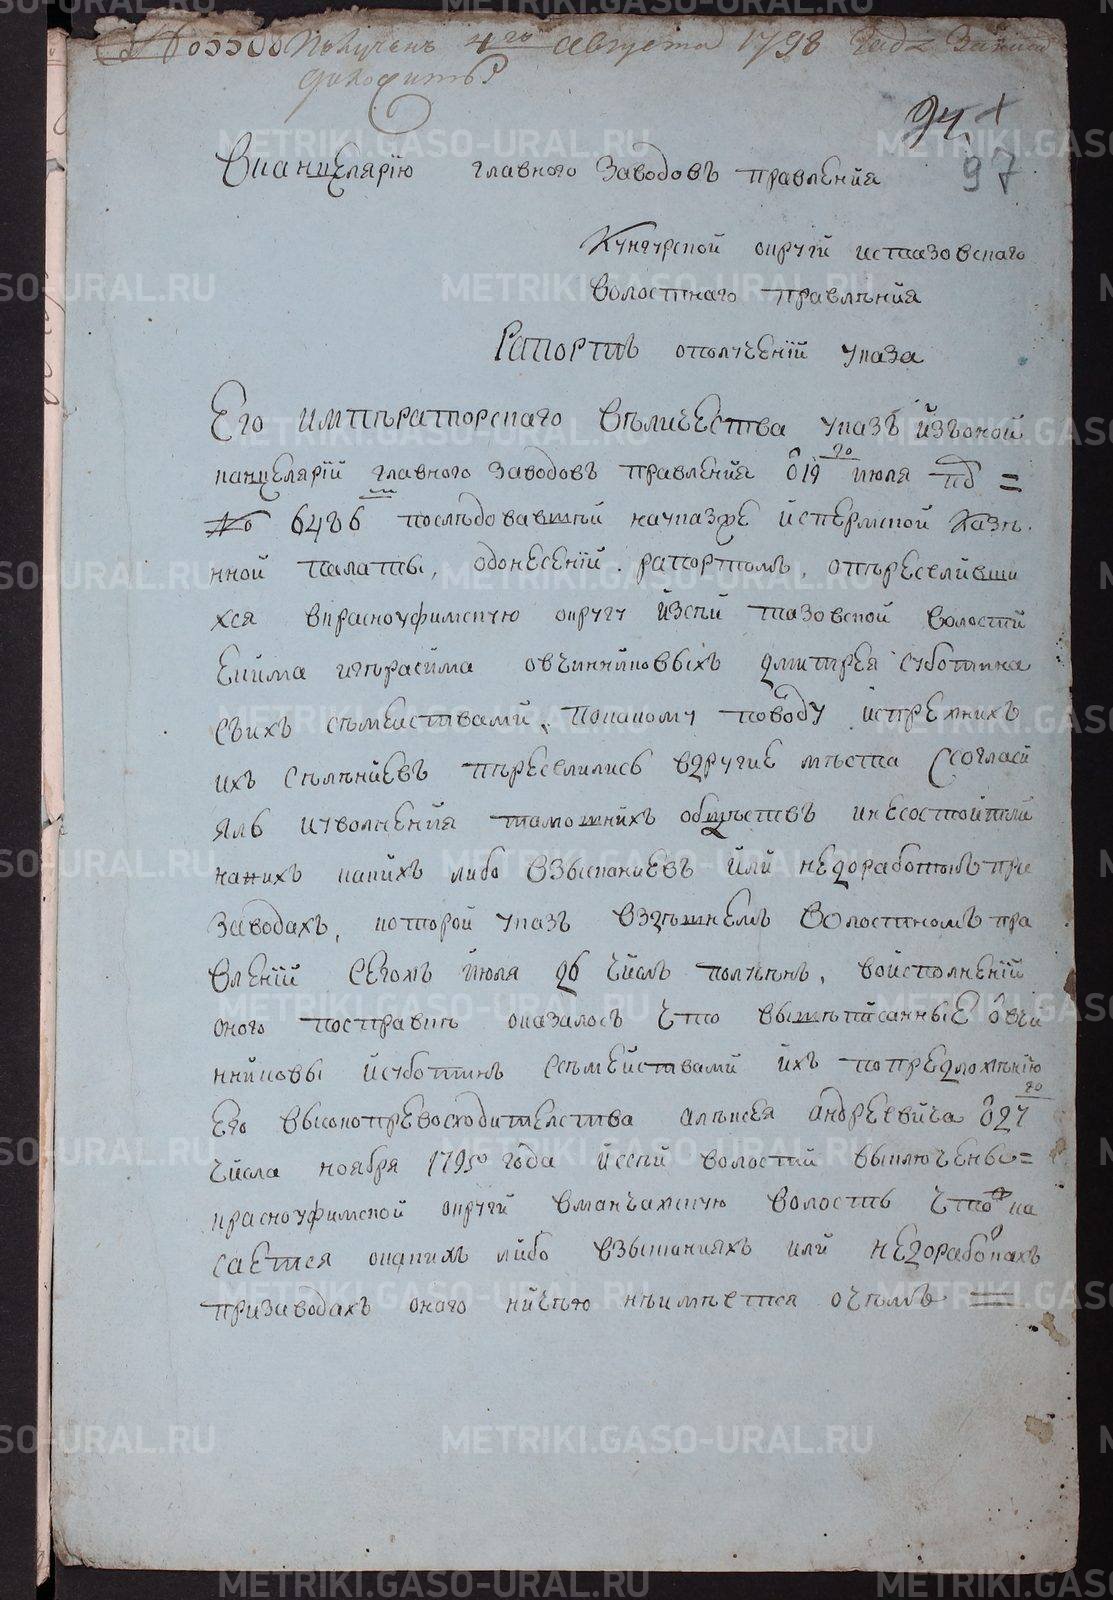 № 5508 Полученъ 4го августа 1798
94
97
Вканцелярїю главного Заводовъ правленїя
Кунгурской округи истазовского
Волостнаго правлѣнїя
Рапортъ ополученїй указа
Его императорскаго вѣличества указъ йзъоной
канцелярїй главного заводовъ правленїя о 19го июля под =
№ 6486м послѣдовавшѣй науказѣ йспермской Казѣ
нной палаты, одонесенїй рапортомъ, опѣреселивши
хся вкрасноуфимскую округу йзсей тазовской волостй
Екима игѣрасима овчинниковыхъ дмитрея суботина
съихъ сѣмействамй, покакому поводу йспрежнихъ
ихъ сѣлѣниевъ пѣреселились вдругие мѣста Ссогласй
яль иуволнения тамошнихъ общѣствъ инесостоитлй
нанихъ какихъ либо взысканиевъ йли недоработокъ при
заводахъ, которой указъ вздѣшнемъ волостномъ пра
вленїй сегожъ июля 26 числъ полученъ, воисполненїй
оного посправкѣ оказалось что вышѣписанные овчи
нниковы йсуботинъ ссѣмействамй йхъ попредложѣнїю
Его высокопревосходителства алѣксея андреевича о 27го
числа ноября 1795го года йссей волостй выключены =
красноуфимской округи вманчажскую волость что ка
сается окакихъ либо взысканияхъ или недоработкахъ
призаводахъ онаго ничѣго нѣимѣется очѣмъ =
METRIKI.GASO-URAL.RU